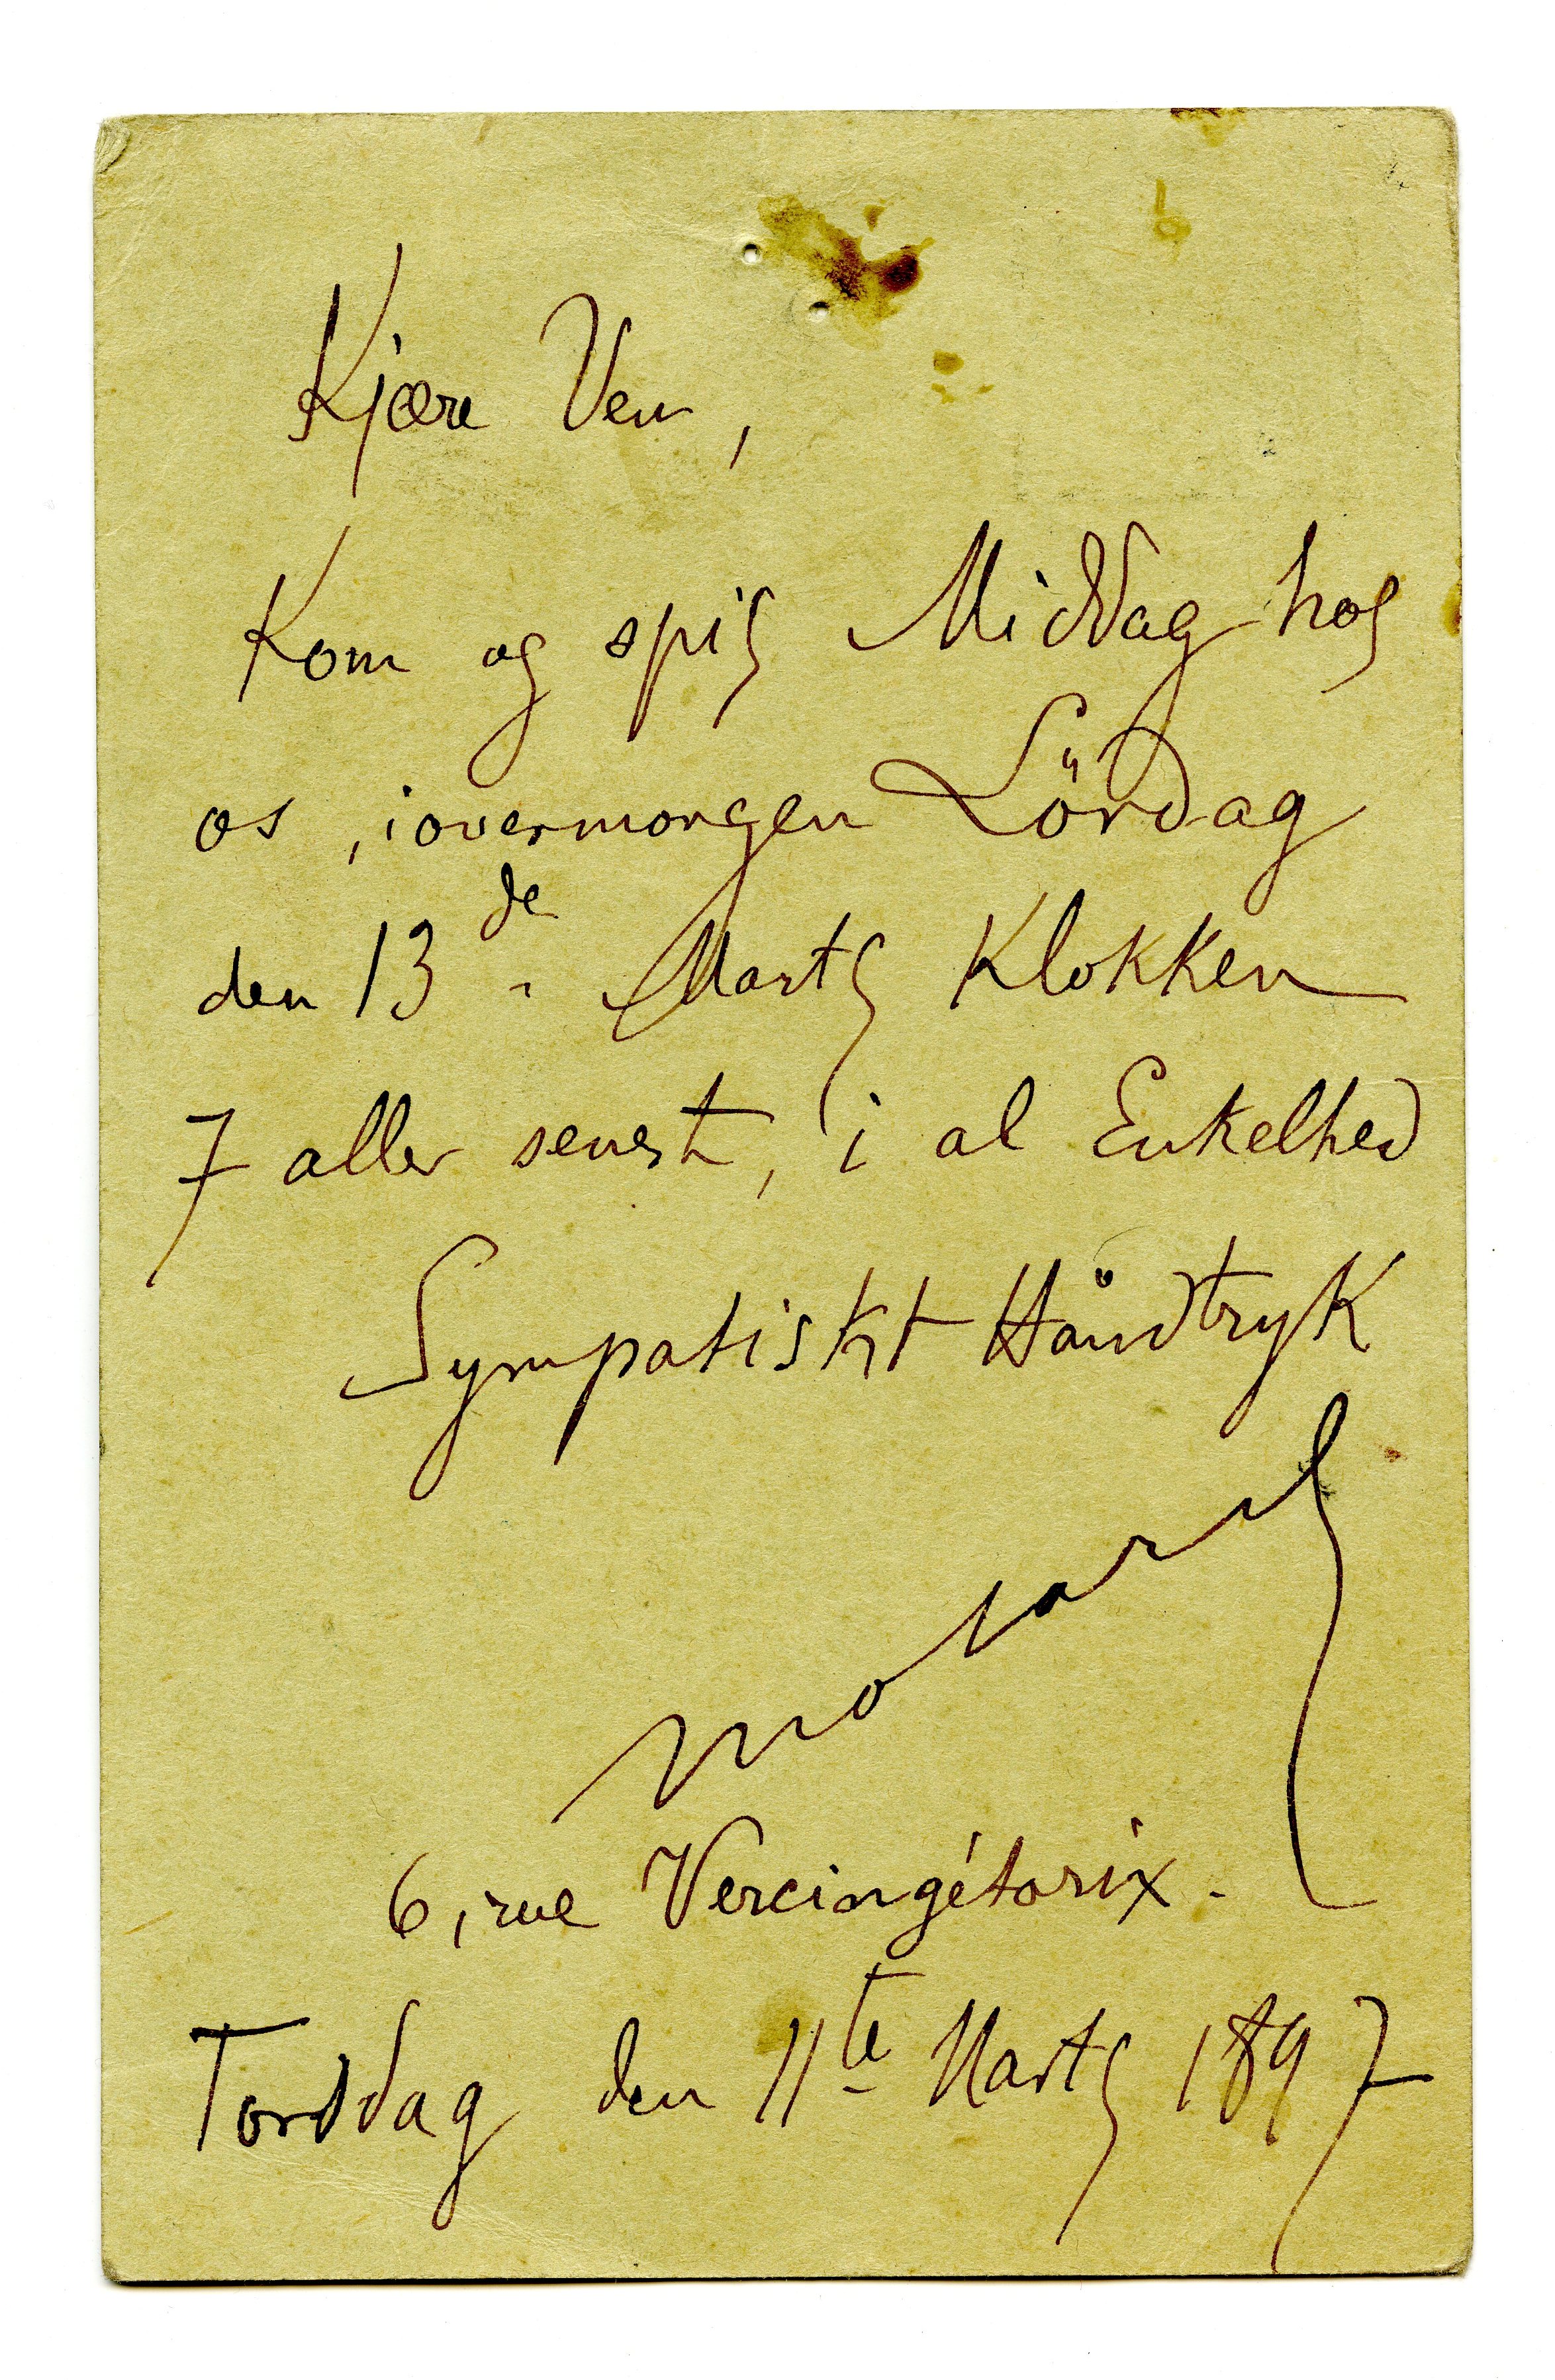 Kjære Ven,
Kom og spis Middag hos
os, iovermorgen Lördag
den 13de Marts Klokken
7 aller senest, i al Enkelhed
Sympatiskt Håndtryk
Molard
6, rue Vercingétorix.
Torsdag den 11te Marts 1897